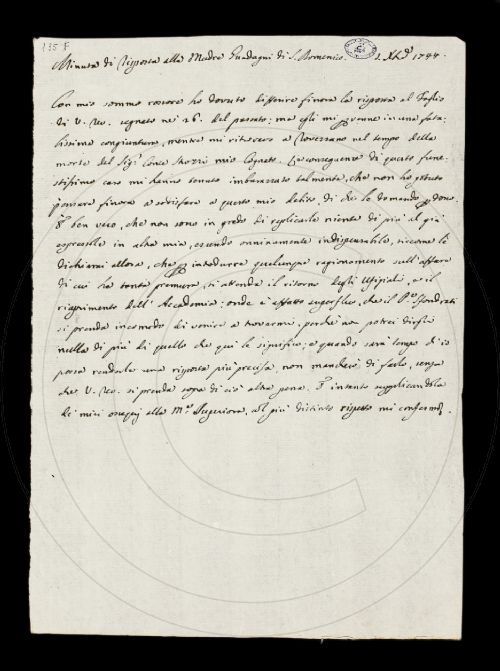 135 F
Minuta di Risposta alla Madre Guadagni di S. Domenico. 1. Xbre 1744.
Con mio sommo rossore ho dovuto differire finora la risposta al Foglio
di V. Rev. segnato nei 26. del passato; ma egli mi venne in una fata-
lissima congiuntura, mentre mi ritrovavo a Rovezzano nel tempo della
morte del Sig. Conte mio Cognato. Le conseguenze di questo fune-
stissimo caso mi hanno tenuto imbarazzato talmente, che non ho potuto
pensare finora a sodisfare a questo mio debito, di che le domando perdono.
È ben vero, che non sono in grado di replicarle niente di più al già
espressole in altra mia, essendo onninamente indispensabile, siccome le
dichiarai allora, che per introdurre qualunque ragionamento sull'affare
di cui ha tanta premura, si attenda il ritorno degli Ufiziali, e il
riaprimento dell'Accademia: onde è affatto superfluo, che il Pre Sondrati
si prenda incomodo di venire a trovarmi, perchè non potrei dirgli
nulla di più di quello che qui le significo; e quando sarà tempo d'io
possa renderle una risposta più precisa, non mancherò di farlo, senza
che V. Rev. si prenda sopra di ciò altra pena. E intanto supplicandola
de miei ossequj alla Me Superiora, col più distinto rispetto mi confermo.